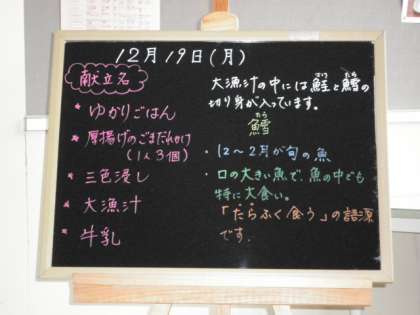 12月19日(月)
献立名
* ゆかりごはん
* 厚揚げのごまだれかけ
(1人3個)
* 三色浸し
* 大漁汁
* 牛乳
大漁汁の中には鮭と鱈の
切り身が入っています。
たら
鱈
・12～2月が旬の魚
・口の大きい魚で、魚の中でも
特に大食い。
「たらふく食う」の語源
です。